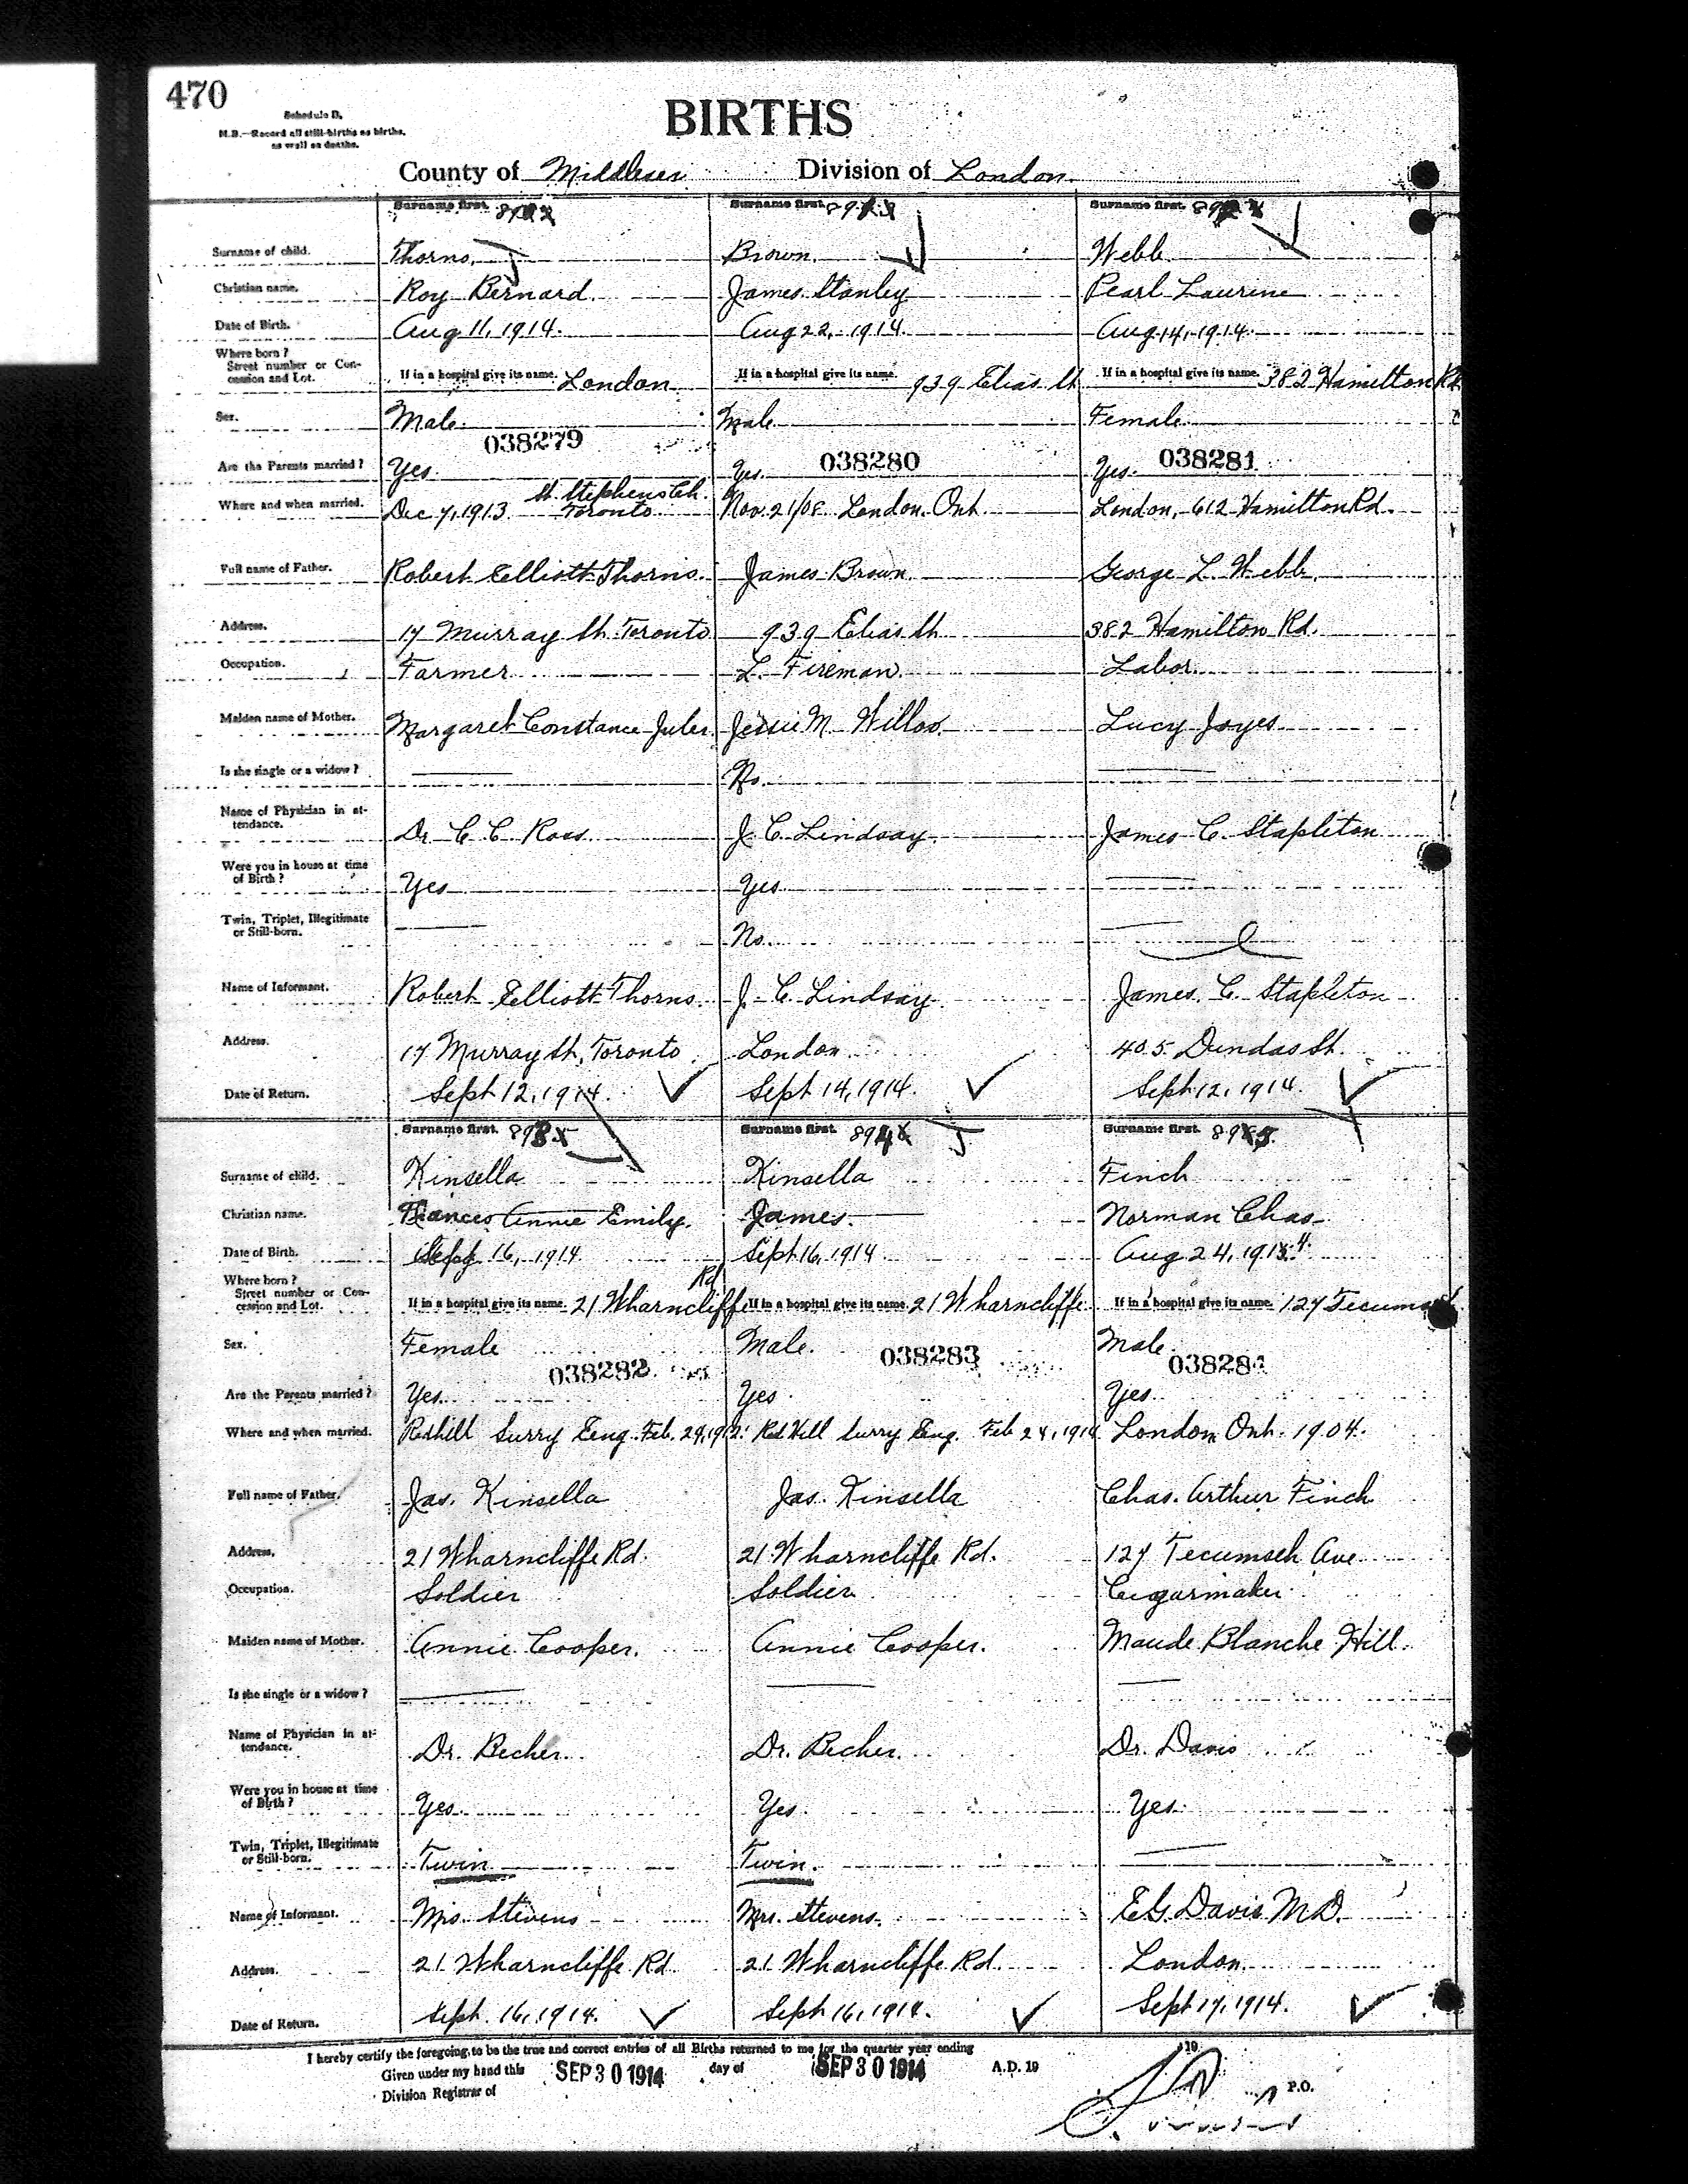 470
Schedule D.
N.B.—Record all still-births as births,
as well as deaths.
BIRTHS
County of Middlesex Division of London
Surname first. Surname first. Surname first.
Surname of child. Thorns. Brown. Webb
Christian name. Roy Bernard. James Stanley Pearl Laurine
Date of Birth. Aug 11, 1914. Aug 22, 1914. Aug 14, 1914.
Where born?
Street number or Con-
cession and Lot. If in a hospital give its name. London If in a hospital give its name. 939 Elias St If in a hospital give its name. 382 Hamilton Rd
Sex. Male. Male Female
038279 038280 038281
Are the Parents married? Yes. Yes. Yes.
St. Stephens Ch.
Where and when married. Dec 7, 1913 Toronto Nov. 21/08 London Ont London, 612 Hamilton Rd.
Full name of Father. Robert Elliott Thorns. James Brown George L. Webb
Address. 17 Murray St. Toronto 939 Elias St 382 Hamilton Rd.
Occupation. Farmer L. Fireman. Labor.
Maiden name of Mother. Margaret Constance Jules Jessie M. Lucy Joyes
Is she single or a widow? No.
Name of Physician in at-
tendance. Dr C. C. Ross J. C. Lindsay. James C. Stapleton
Were you in house at time
of Birth? Yes Yes
Twin, Triplet, Illegitimate
or Still-born. No.
Name of Informant. Robert Elliott Thorns. J. C. Lindsay James. C. Stapleton
Address. 17 Murray St, Toronto London 405 Dundas St.
Date of Return. Sept 12, 1914. Sept 14, 1914. Sept 12, 1914
Surname first. Surname first. Surname first.
Surname of child. Kinsella Kinsella Finch
Christian name. Frances Annie Emily. James. Norman Chas
Date of Birth. Sept 16, 1914 Sept 16, 1914 Aug 24, 1914.
Where born?
Rd
Street number or Con-
cession and Lot. If in a hospital give its name. 21 Wharncliffe If in a hospital give its name. 21 Wharncliffe If in a hospital give its name. 127
Sex. Female Male. Male
038282 038283 038284
Are the Parents married? Yes. Yes Yes
Where and when married. Redhill Surry Eng. Feb. 24, 1912. Red Hill Surry Eng. Feb 24, London Ont. 1904.
Full name of Father. Jas. Kinsella Jas. Kinsella Chas. Arthur Finch
Address. 21 Wharncliffe Rd. 21 Wharncliffe Rd. 127 Tecumseh Ave
Occupation. Soldier Soldier Cigarmaker
Maiden name of Mother. Annie Cooper. Annie Cooper. Maude Blanche Hill.
Is she single or a widow?
Name of Physician in at-
tendance. Dr. Becher. Dr. Becher. Dr. Davis
Were you in house at time
of Birth? Yes. Yes. Yes.
Twin, Triplet, Illegitimate
or Still-born. Twin Twin.
Name of Informant. Mrs. Stevens Mrs. Stevens. E G. Davis M.D.
Address. 21 Wharncliffe Rd 21 Wharncliffe Rd. London.
Date of Return. Sept. 16, 1914. Sept 16, 1914. Sept 17, 1914.
I hereby certify the foregoing to be the true and correct entries of all Births returned to me for the quarter year ending 19
Given under my hand this SEP 30 1914 day of SEP 30 1914 A.D. 19
Division Registrar of P.O.